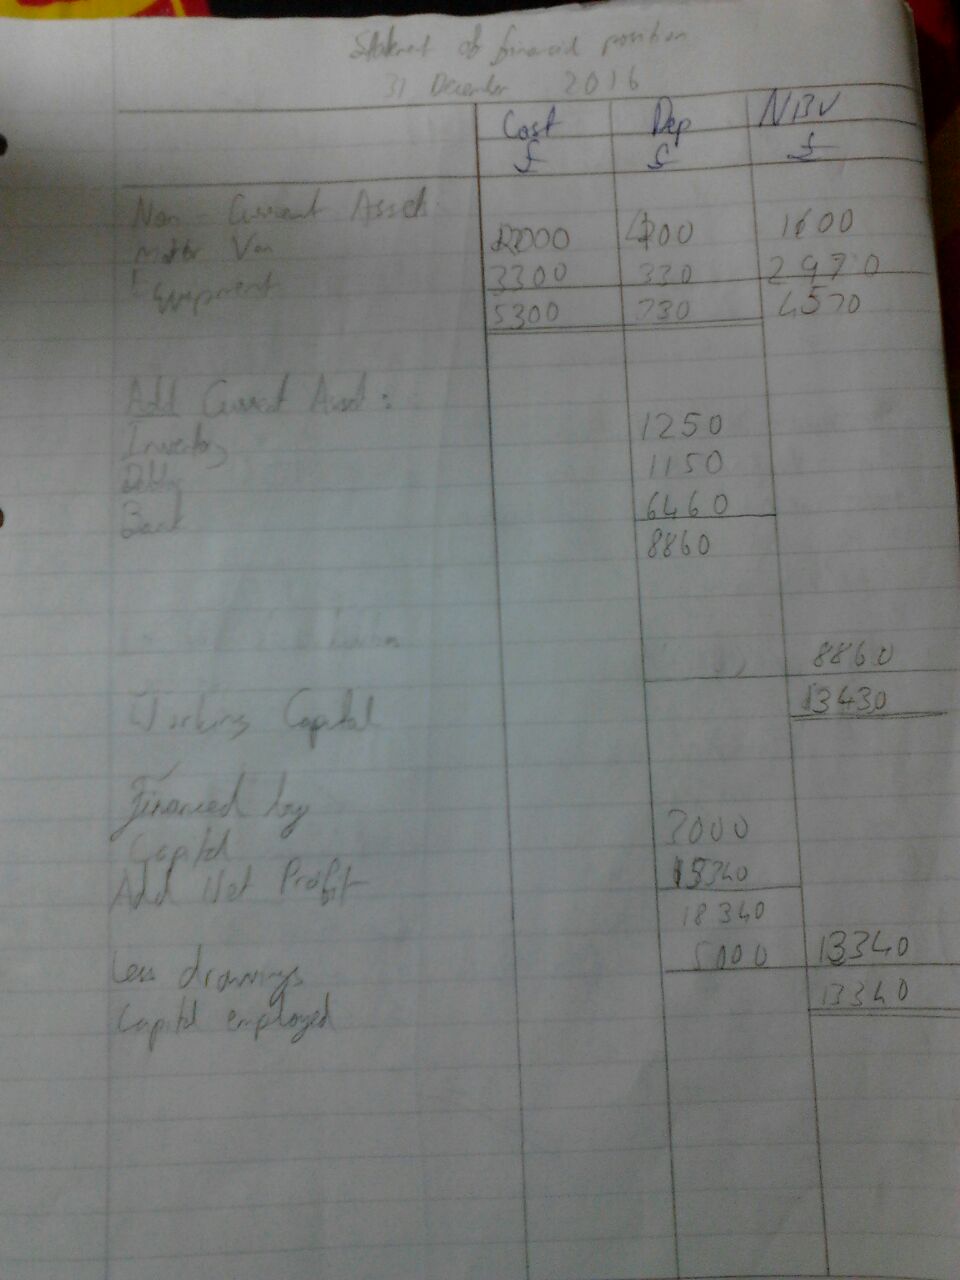 Statement of financial position
31 December 2016
Cost Dep NBV
£ £ £
Non - Current Asset
Motor Van 2000 400 1600
Equipment 3300 330 2970
5300 730 4570
Add Current Asset :
Inventory 1250
1150
Bank 6460
8860
8860
Working Capital 13430
Financed by
Capital 3000
Add Net Profit 15340
18340
Less drawings 5000 13340
Capital employed 13340